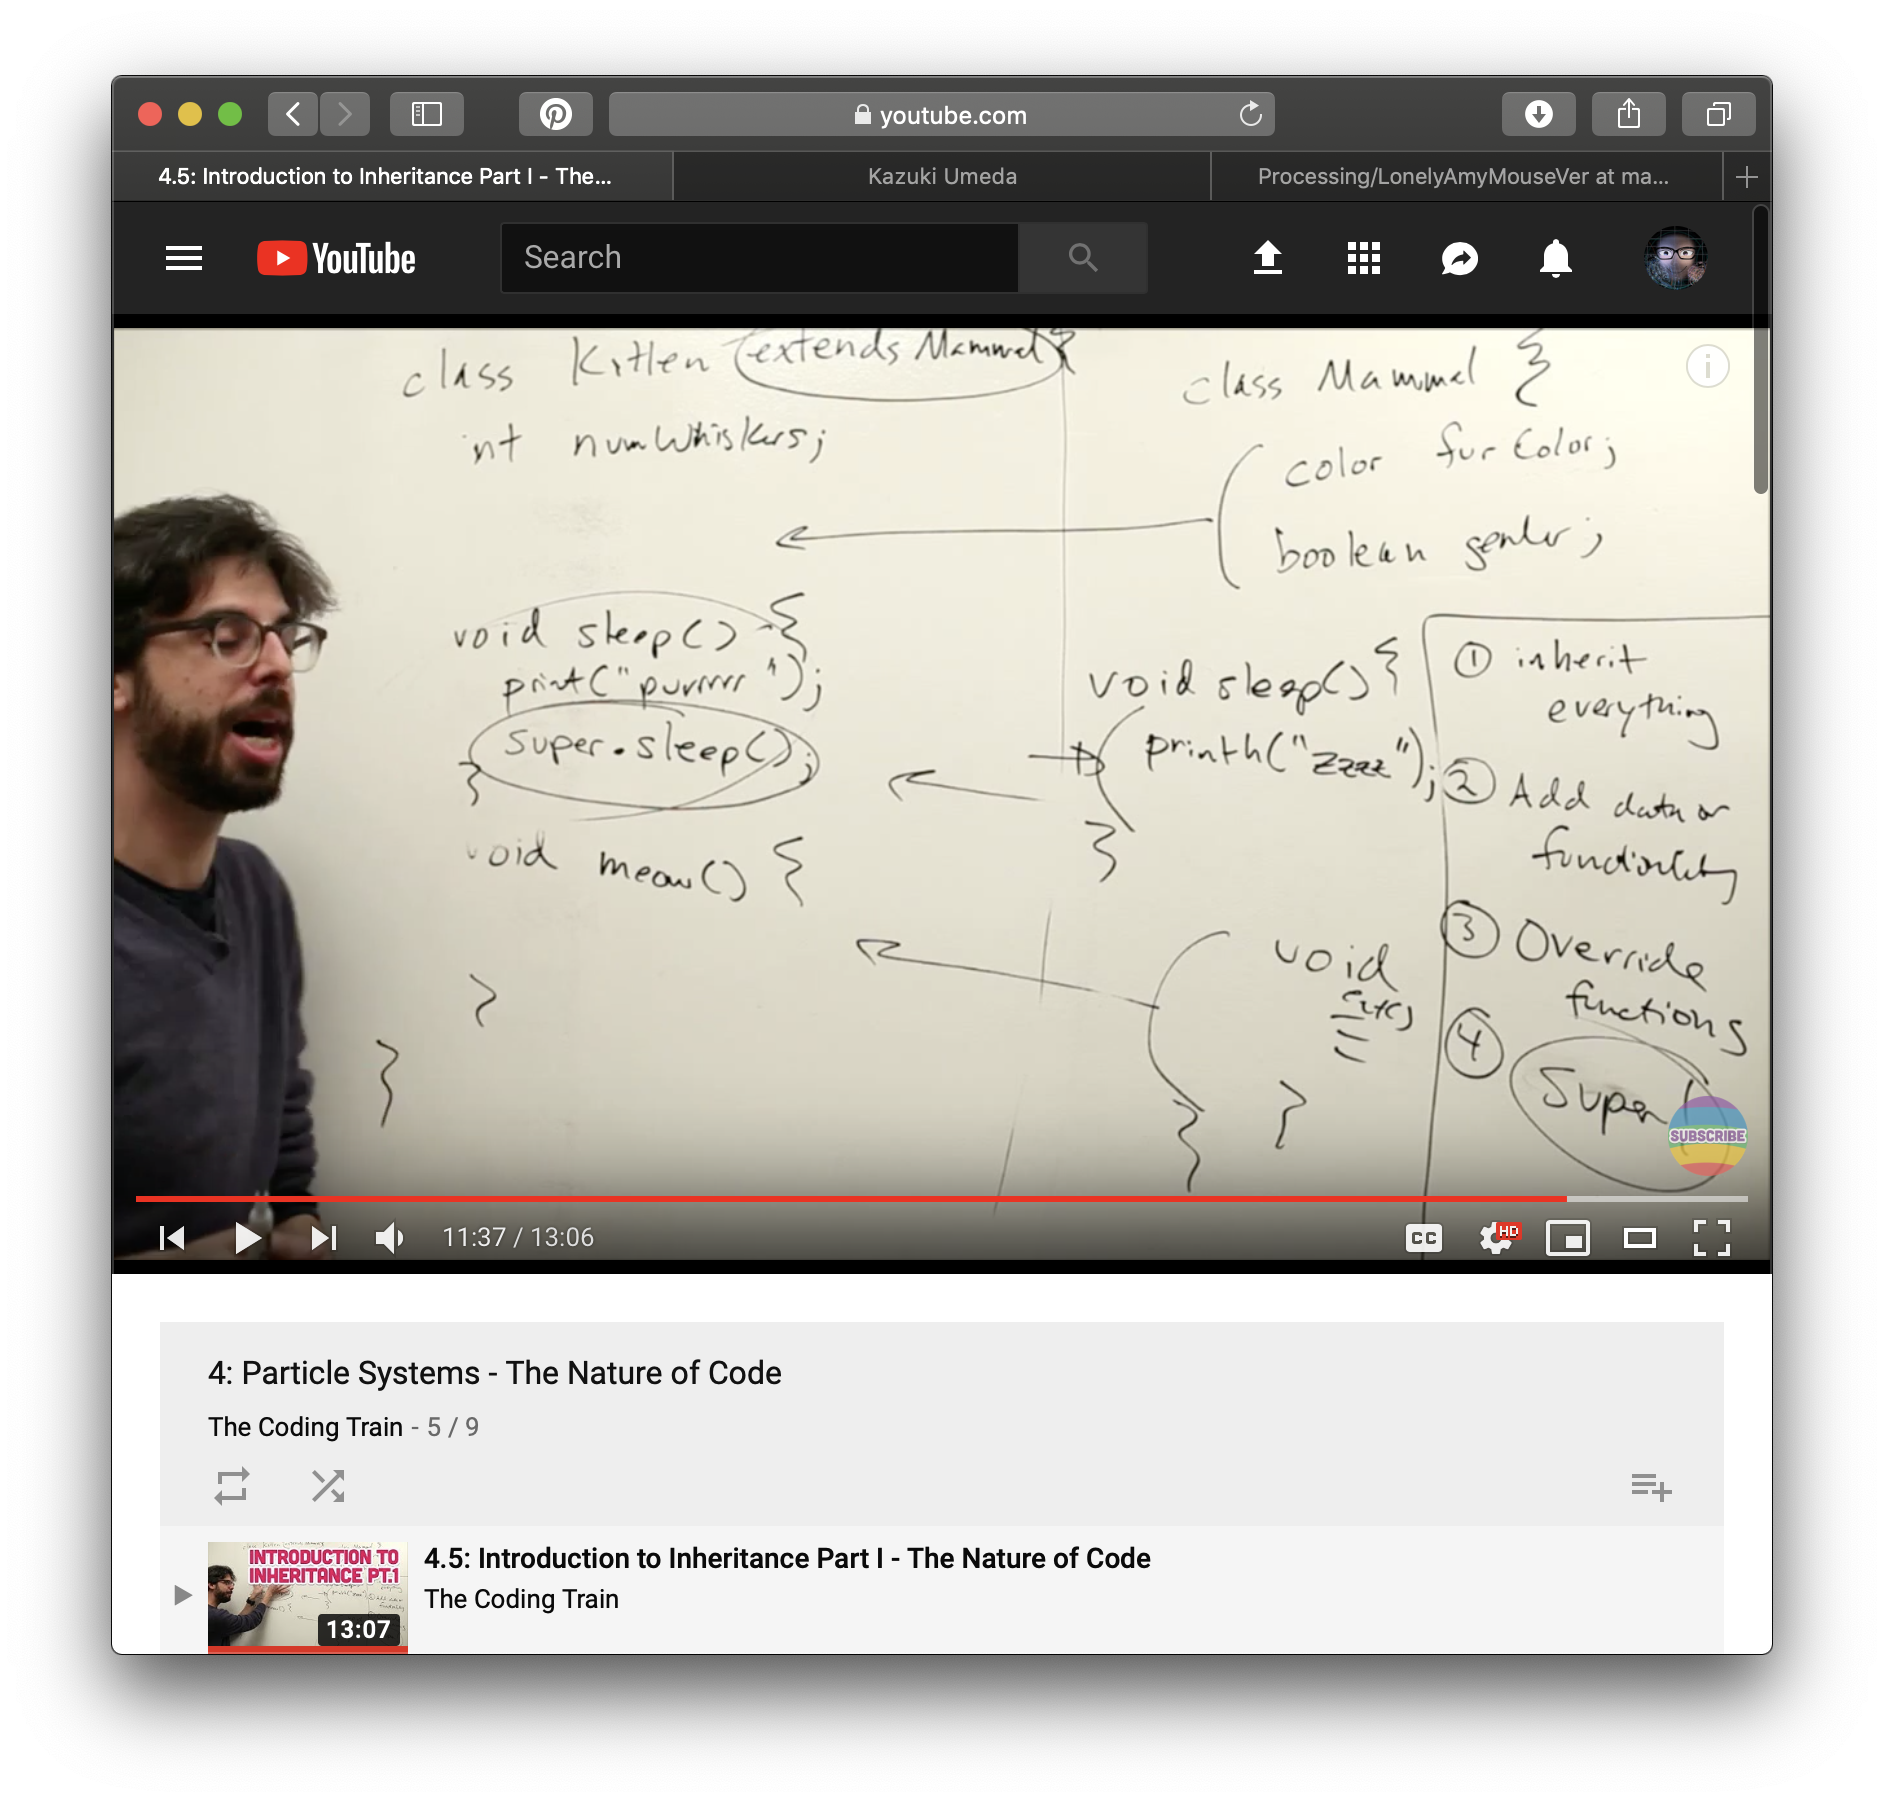 youtube.com
4.5: Introduction to Inheritance Part I - The...
Kazuki Umeda
Processing/LonelyAmyMouseVer at ma...
YouTube
Search
class Kitten extends Mammel {
int numWhiskers;
void sleep() {
print("purrrrr");
super.sleep();
}
void meow() {
}
}
class Mammel {
color furColor;
boolean gender;
void sleep() {
println("zzzz");
}
void
}
}
① inherit
everything
② Add data or
functionality
③ Override
functions
④
Super!
SUBSCRIBE
11:37 / 13:06
CC
HD
4: Particle Systems - The Nature of Code
The Coding Train - 5 / 9
INTRODUCTION TO
INHERITANCE PT.1
13:07
4.5: Introduction to Inheritance Part I - The Nature of Code
The Coding Train